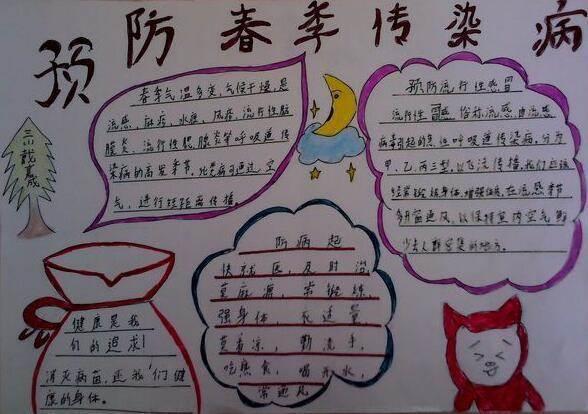 预防春季传染病
春季气温多变,气候干燥,是
流感、麻疹、水痘、风疹、流行性脑
膜炎、流行性腮腺炎等呼吸道传
染病的高发季节,此类病可通过空
气,进行短距离传播。
预防流行性感冒
流行性感冒俗称流感,由流感
病毒引起的急性呼吸道传染病,分为
甲、乙、丙三型,以飞沫传播,我们应该
经常锻炼身体,增强体质,在流感季节
多开窗通风,以保持室内空气新
少去人群密集的地方。
三川 戴嘉成
防病起
快就医,及时治
莫麻痹,常锻练,
强身体,衣适量
莫着凉,勤洗手,
吃熟食,喝开水,
常通风
健康是我
们的追求!
消灭病苗,还我们健
康的身体。